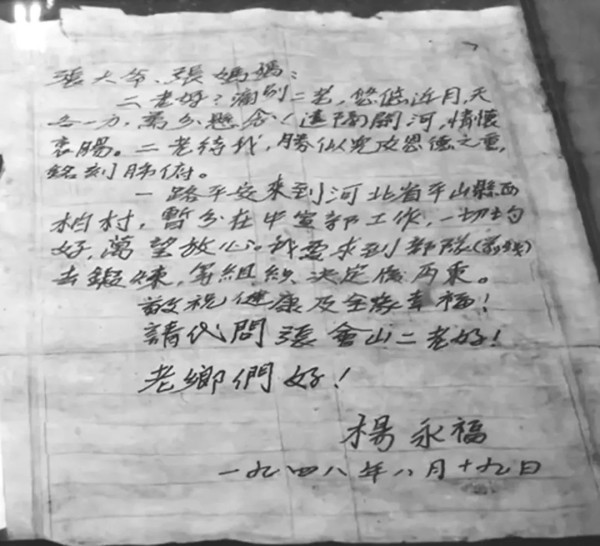 張大爷、張媽媽：
二老好？痛别二老，悠悠近月，天
各一方，萬分懸念！遠隔關河，情懷
衷腸。二老待我，勝似兒女恩德之重，
銘刻肺俯。
一路平安來到河北省平山縣西
柏村，暫分在中宣部工作，一切均
好，萬望放心。我要求到部隊(前线)
去鍛煉，等組織決定後再禀。
敬祝健康及全家幸福！
請代問張會山二老好！
老鄉們好！
楊永福
一九四八年八月十九日